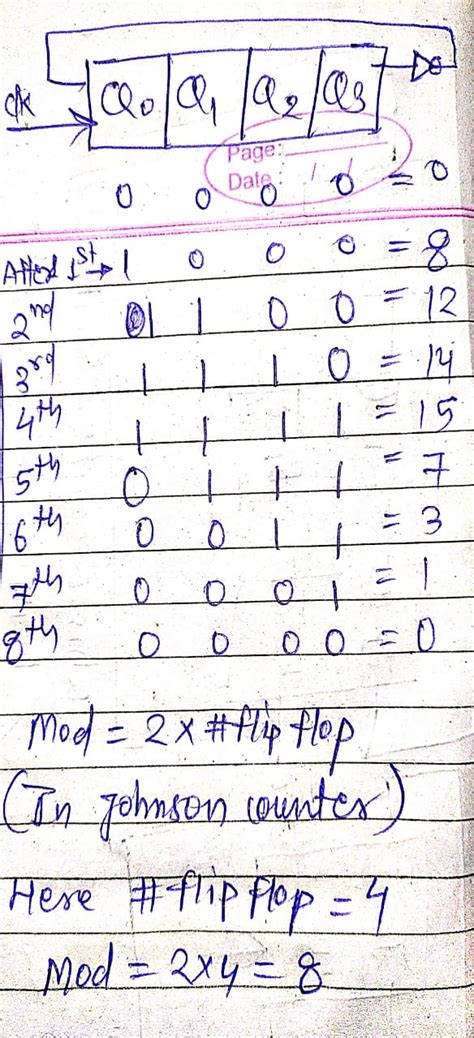 clk Q0 Q1 Q2 Q3
Page:
Date: / /
0 0 0 0 = 0
After 1st → 1 0 0 0 = 8
2nd 1 1 0 0 = 12
3rd 1 1 1 0 = 14
4th 1 1 1 1 = 15
5th 0 1 1 1 = 7
6th 0 0 1 1 = 3
7th 0 0 0 1 = 1
8th 0 0 0 0 = 0
Mod = 2 x #flip flop
(In Johnson counter)
Here #flip flop = 4
Mod = 2x4 = 8